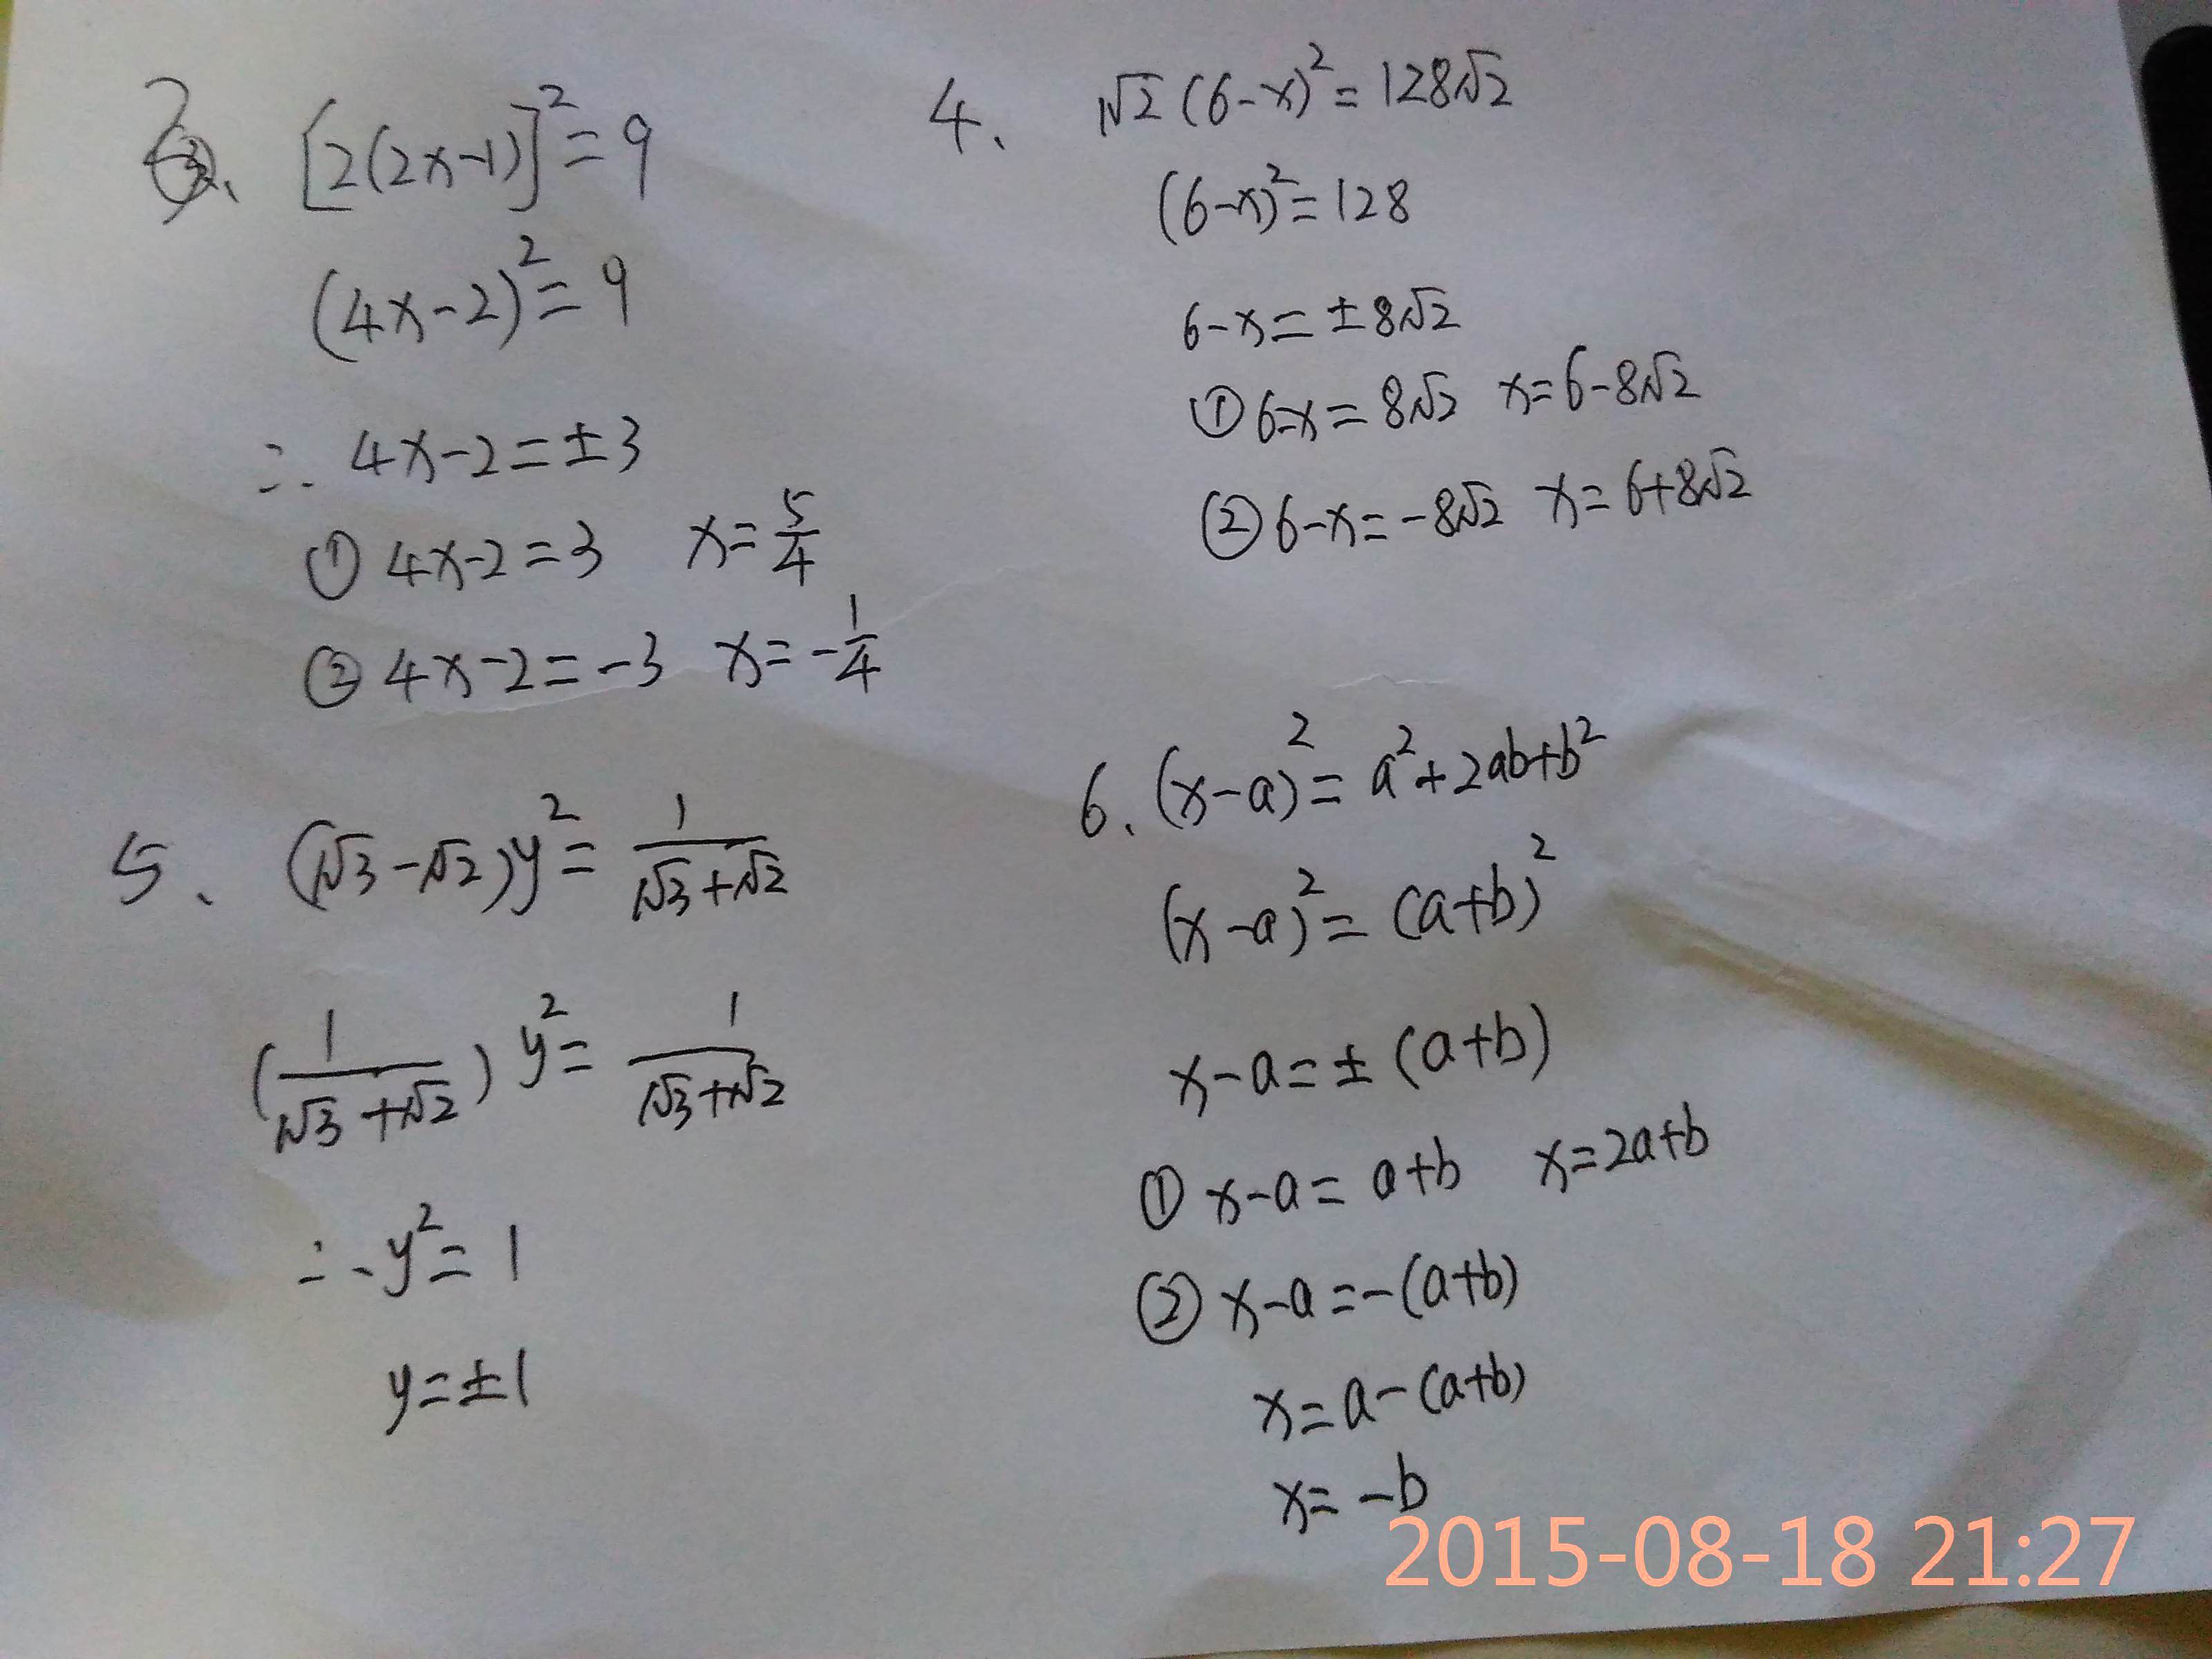 3、 [2(2x-1)]²=9
(4x-2)²=9
∴ 4x-2=±3
① 4x-2=3 x=5/4
② 4x-2=-3 x=-1/4
4、 √2(6-x)²=128√2
(6-x)²=128
6-x=±8√2
① 6-x=8√2 x=6-8√2
② 6-x=-8√2 x=6+8√2
5、 (√3-√2)y²=1/(√3+√2)
(1/(√3+√2))y²=1/(√3+√2)
∴ y²=1
y=±1
6、 (x-a)²=a²+2ab+b²
(x-a)²=(a+b)²
x-a=±(a+b)
① x-a=a+b x=2a+b
② x-a=-(a+b)
x=a-(a+b)
x=-b
2015-08-18 21:27